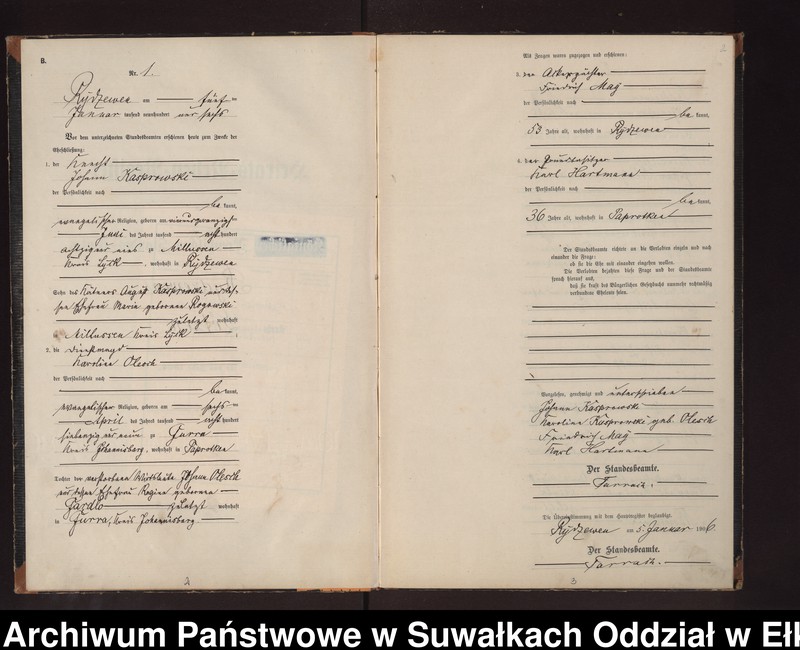 B.
Nr. 1.
Rydzewen am fünf ten
Januar tausend neunhundert und sechs
Vor dem unterzeichneten Standesbeamten erschienen heute zum Zwecke der
Eheschließung:
1. der Knecht
Johann Kasprowski
der Persönlichkeit nach
be kannt,
evangelischer Religion, geboren am vierundzwanzigsten
Juni des Jahres tausend acht hundert
achtzig und eins zu Milussen
Kreis Lyck, wohnhaft in Rydzewen
Sohn des Kätners August Kasprowski und des-
sen Ehefrau Marie geborene Rogowski
zuletzt wohnhaft
in Milussen Kreis Lyck
2. die Dienstmagd
Karoline Olesch
der Persönlichkeit nach
be kannt,
evangelischer Religion, geboren am sechs ten
April des Jahres tausend acht hundert
siebenzig und neun zu Jurra
Kreis Johannisberg, wohnhaft in Paprodtken
Tochter der verstorbenen Johann Olesch
und dessen Ehefrau Regine geborenen
zuletzt wohnhaft
in Jurra, Kreis Johannisberg
2
Als Zeugen waren zugezogen und erschienen:
3. der Ackerpächter
Friedrich May
der Persönlichkeit nach
be kannt,
53 Jahre alt, wohnhaft in Rydzewen
4. der Grundbesitzer
Karl Hartmann
der Persönlichkeit nach
be kannt,
36 Jahre alt, wohnhaft in Paprodtken
Der Standesbeamte richtete an die Verlobten einzeln und nach
einander die Frage:
ob sie die Ehe mit einander eingehen wollen.
Die Verlobten bejahten diese Frage und der Standesbeamte
sprach hierauf aus,
daß sie kraft des Bürgerlichen Gesetzbuchs nunmehr rechtmäßig
verbundene Eheleute seien.
Vorgelesen, genehmigt und unterschrieben
Johann Kasprowski
Karoline Kasprowski geb. Olesch
Friedrich May
Karl Hartmann
Der Standesbeamte.
Tarrach.
Die Übereinstimmung mit dem Hauptregister beglaubigt.
Rydzewen am 5. Januar 1906
Der Standesbeamte.
Tarrach.
3
Archiwum Państwowe w Suwałkach Oddział w Ełk